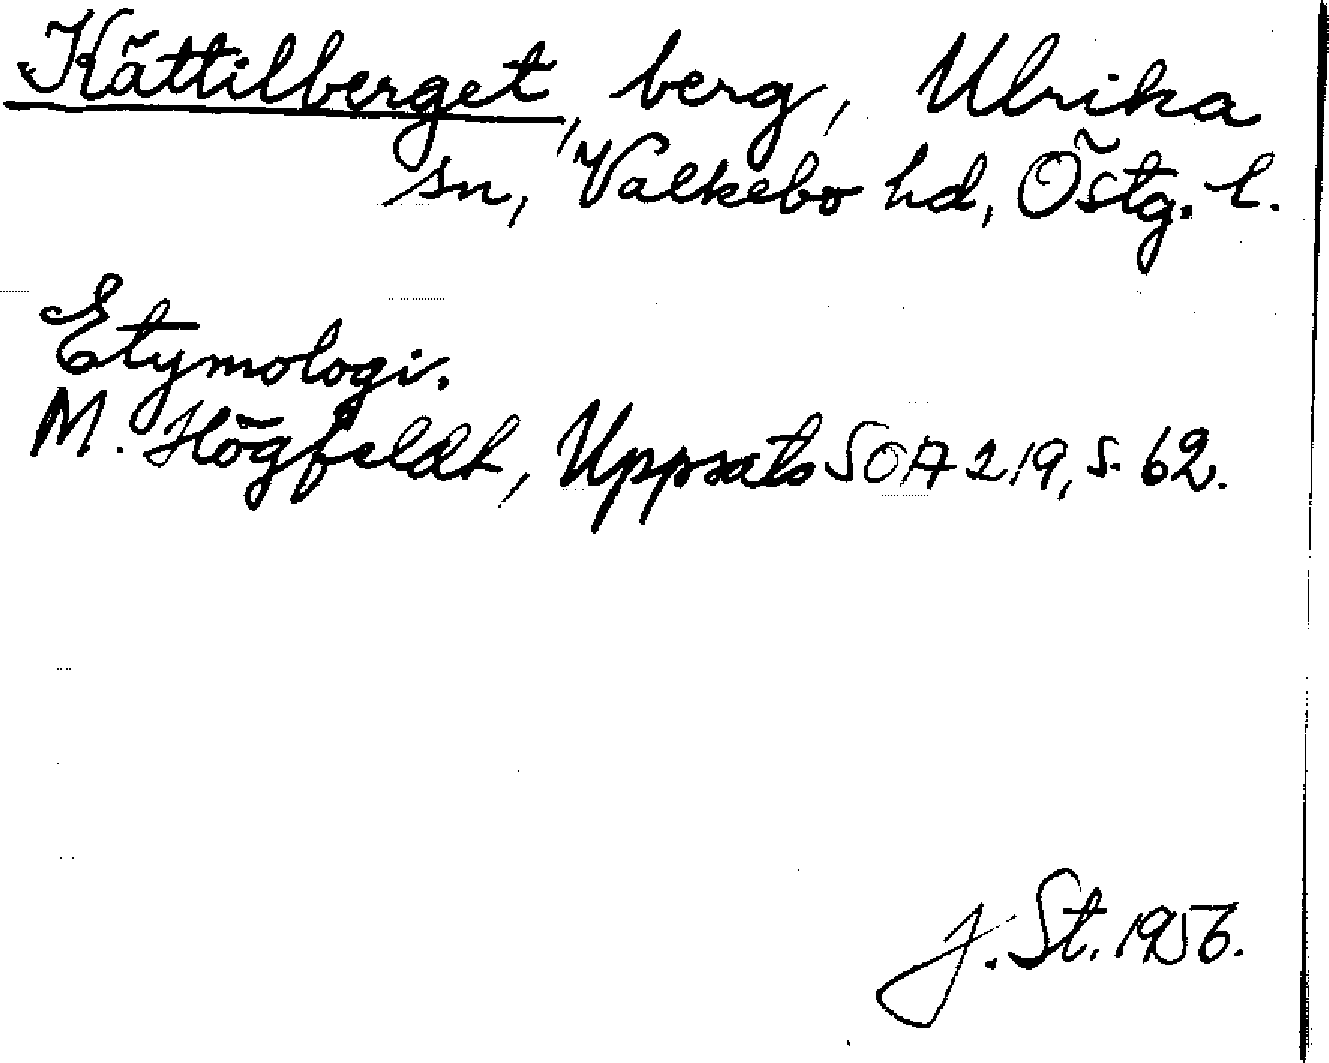 Kättilberget, berg, Ulrika
sn, Valkebo hd, Östg. l.
Etymologi.
M. Högfeldt, Uppsats SOA 219, s. 62.
J. St. 1956.